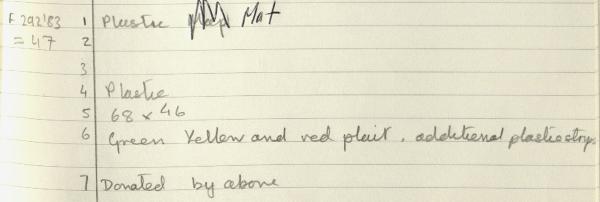 F 292'83 1 Plastic Mat
= 47 2
3
4 Plastic
5 68 x 46
6 Green Yellow and red plait, additional plastic strip.
7 Donated by above